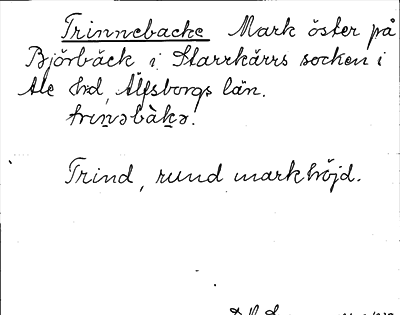 Trinnebacke Mark öster på
Björbäck i Starrkärrs socken i
Ale hd, Älfsborgs län.
trinəbàkə.
Trind, rund markhöjd.